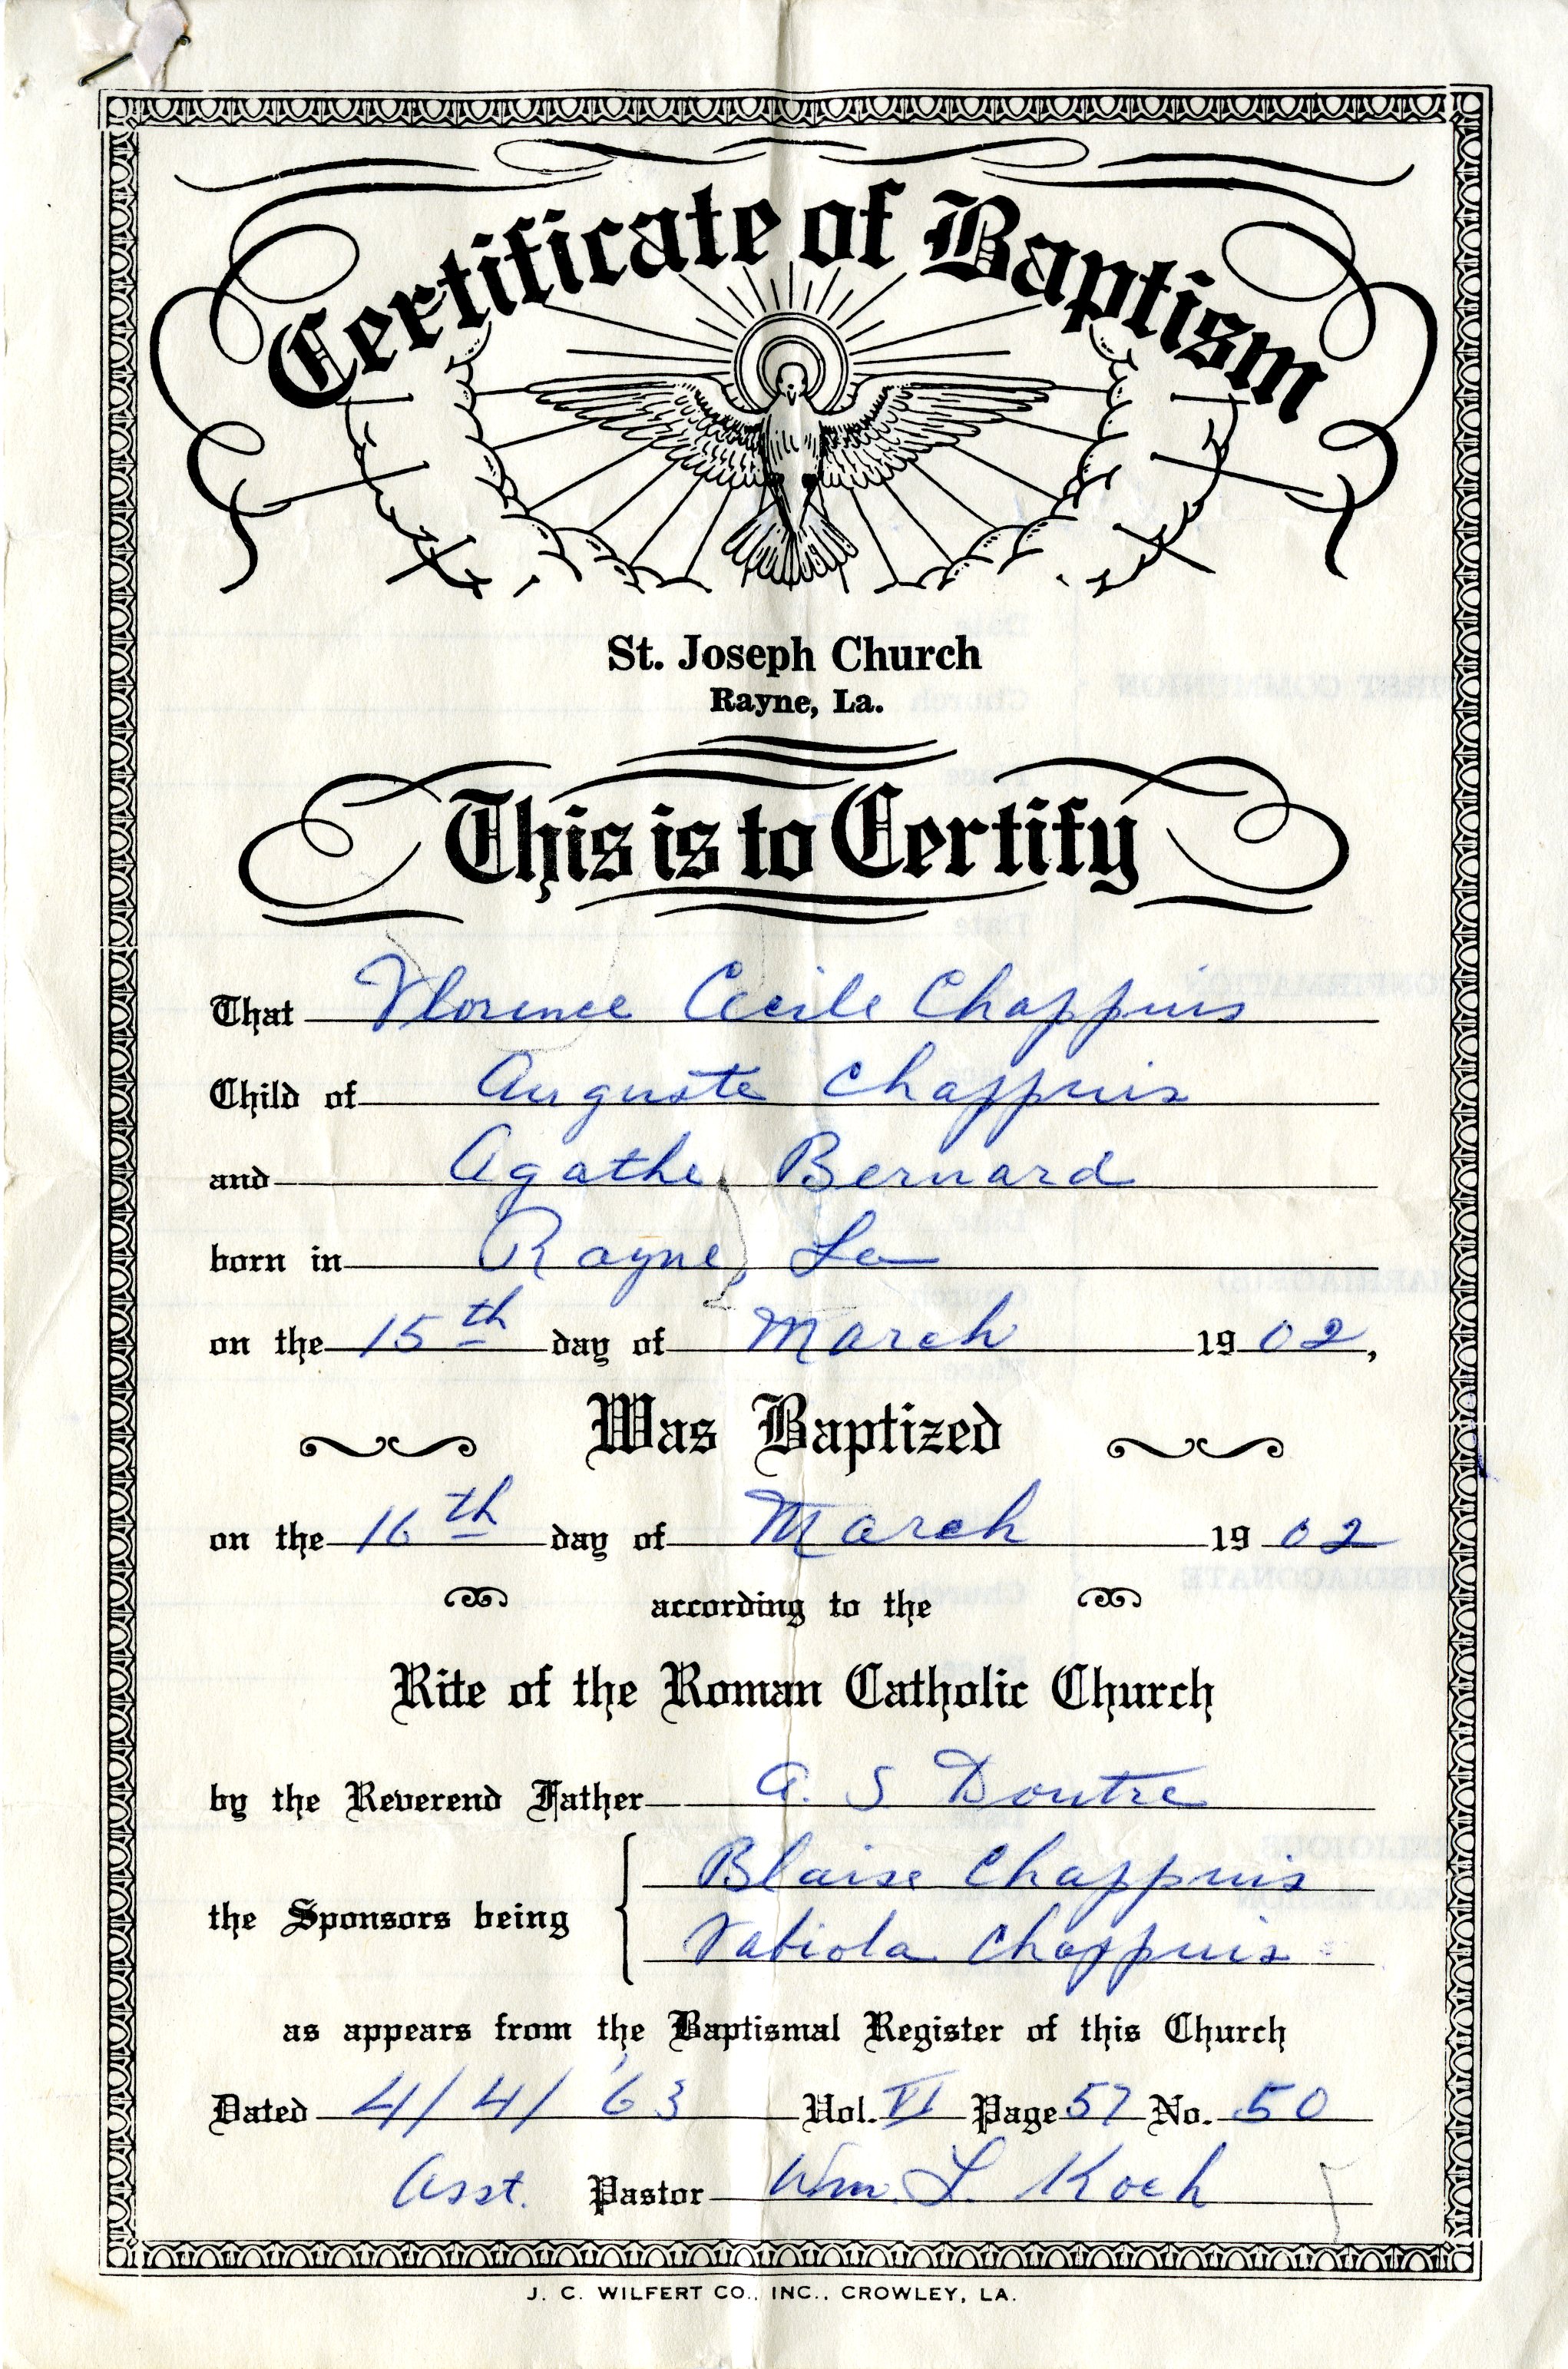 Certificate of Baptism
St. Joseph Church
Rayne, La.
This is to Certify
That Florence Cecile Chappuis
Child of Auguste Chappuis
and Agathe Bernard
born in Rayne, La
on the 15th day of March 1902,
Was Baptized
on the 16th day of March 1902
according to the
Rite of the Roman Catholic Church
by the Reverend Father A. S Doutre
the Sponsors being Blaise Chappuis
Fabiola Chappuis
as appears from the Baptismal Register of this Church
Dated 4/4/'63 Vol. VI Page 57 No. 50
Asst. Pastor Wm. L. Koch
J. C. WILFERT CO., INC., CROWLEY, LA.